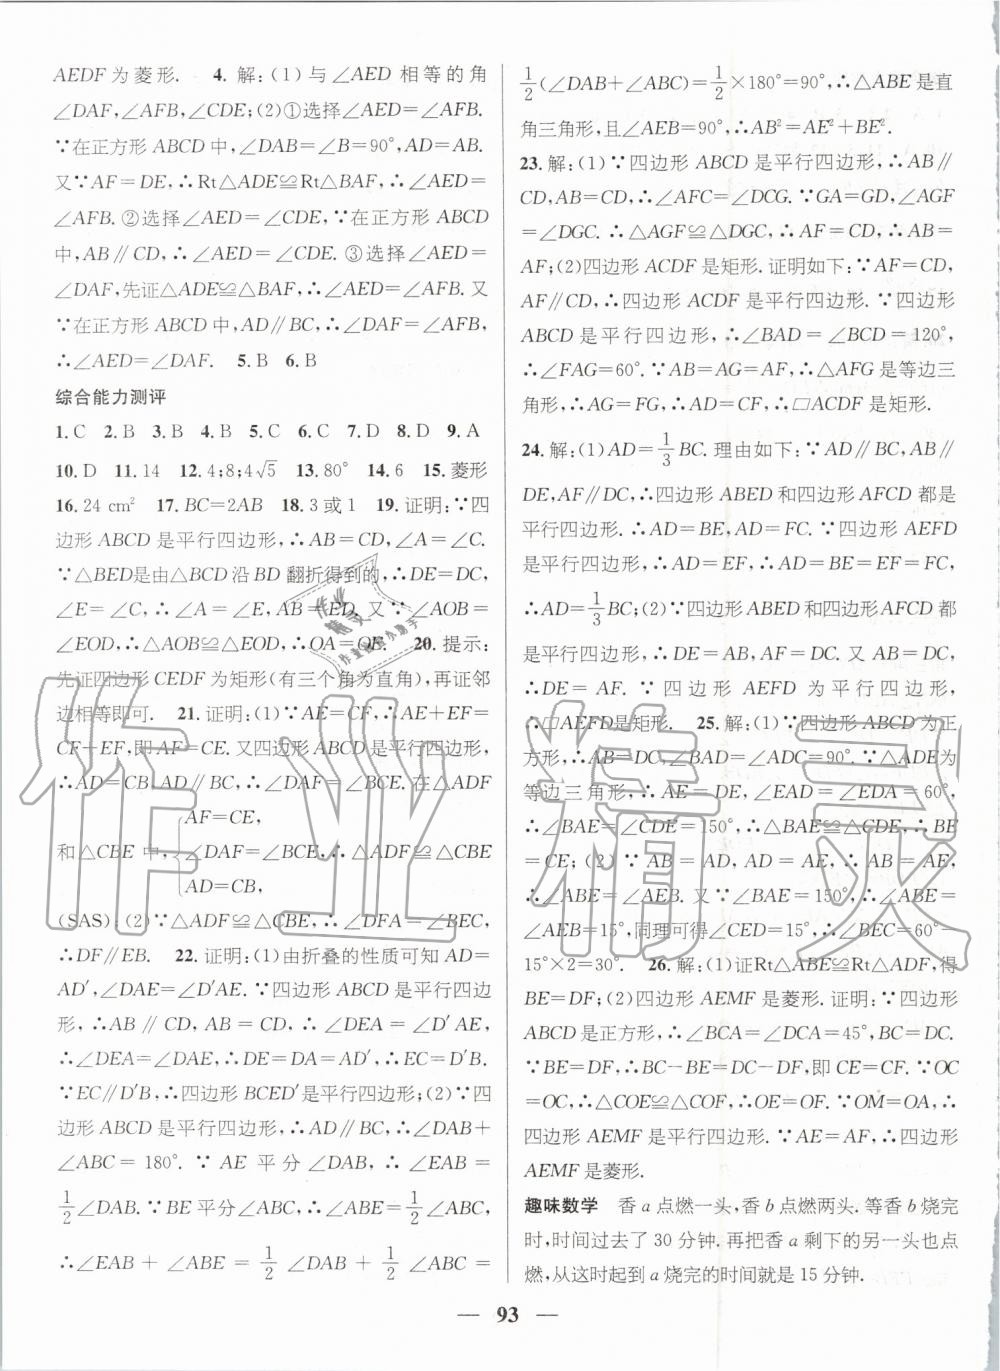 AEDF 为菱形. 4. 解:(1)与∠AED 相等的角
∠DAF,∠AFB,∠CDE;(2)①选择∠AED=∠AFB.
∵在正方形 ABCD 中,∠DAB=∠B=90°,AD=AB.
又∵AF=DE,∴Rt△ADE≌Rt△BAF,∴∠AED=
∠AFB. ②选择∠AED=∠CDE,∵在正方形 ABCD
中,AB∥CD,∴∠AED=∠CDE. ③选择∠AED=
∠DAF,先证△ADE≌△BAF,∴∠AED=∠AFB. 又
∵在正方形 ABCD 中,AD∥BC,∴∠DAF=∠AFB,
∴∠AED=∠DAF. 5. B 6. B
综合能力测评
1. C 2. B 3. B 4. B 5. C 6. B 7. D 8. D 9. A
10. D 11. 14 12. 4;8;4√5 13. 80° 14. 6 15. 菱形
16. 24 cm² 17. BC=2AB 18. 3 或 1 19. 证明:∵四
边形 ABCD 是平行四边形,∴AB=CD,∠A=∠C.
∵△BED是由△BCD 沿 BD 翻折得到的,∴DE=DC,
∠E=∠C,∴∠A=∠E,AB=ED. 又∵∠AOB=
∠EOD,∴△AOB≌△EOD,∴OA=OE. 20. 提示:
先证四边形 CEDF 为矩形(有三个角为直角),再证邻
边相等即可. 21. 证明:(1)∵AE=CF,∴AE+EF=
CF+EF,即 AF=CE. 又四边形ABCD是平行四边形,
∴AD=CB,AD∥BC,∴∠DAF=∠BCE. 在△ADF
和△CBE 中, { AF=CE, ∠DAF=∠BCE, AD=CB, ∴△ADF≌△CBE
(SAS);(2)∵△ADF≌△CBE,∴∠DFA=∠BEC,
∴DF∥EB. 22. 证明:(1)由折叠的性质可知 AD=
AD′,∠DAE=∠D′AE. ∵四边形 ABCD 是平行四边
形,∴AB∥CD,AB=CD,∴∠DEA=∠D′AE,
∴∠DEA=∠DAE,∴DE=DA=AD′,∴EC=D′B.
∵EC∥D′B,∴四边形 BCED′是平行四边形;(2)∵四
边形 ABCD 是平行四边形,∴AD∥BC,∴∠DAB+
∠ABC=180°. ∵AE 平分∠DAB,∴∠EAB=
1/2∠DAB. ∵BE平分∠ABC,∴∠ABE=1/2∠ABC,
∴∠EAB+∠ABE=1/2∠DAB+1/2∠ABC=
1/2(∠DAB+∠ABC)=1/2×180°=90°,∴△ABE是直
角三角形,且∠AEB=90°,∴AB²=AE²+BE².
23. 解:(1)∵四边形 ABCD 是平行四边形,∴AB∥
CD,AB=CD,∴∠AFC=∠DCG. ∵GA=GD,∠AGF
=∠DGC. ∴△AGF≌△DGC,∴AF=CD,∴AB=
AF;(2)四边形 ACDF 是矩形. 证明如下:∵AF=CD,
AF∥CD,∴四边形 ACDF 是平行四边形. ∵四边形
ABCD 是平行四边形,∴∠BAD=∠BCD=120°,
∴∠FAG=60°. ∵AB=AG=AF,∴△AFG 是等边三
角形,∴AG=FG,∴AD=CF,∴□ACDF是矩形.
24. 解:(1)AD=1/3BC. 理由如下:∵AD∥BC,AB∥
DE,AF∥DC,∴四边形 ABED 和四边形 AFCD 都是
平行四边形. ∴AD=BE,AD=FC. ∵四边形 AEFD
是平行四边形,∴AD=EF,∴AD=BE=EF=FC,
∴AD=1/3BC;(2)∵四边形 ABED 和四边形 AFCD 都
是平行四边形. ∴DE=AB,AF=DC. ∵AB=DC,
∴DE=AF. ∵四边形 AEFD 为平行四边形,
∴□AEFD是矩形. 25. 解:(1)∵四边形 ABCD 为正
方形,∴AB=DC,∠BAD=∠ADC=90°. ∵△ADE为
等边三角形,∴AE=DE,∠EAD=∠EDA=60°,
∴∠BAE=∠CDE=150°,∴△BAE≌△CDE,∴BE
=CE;(2)∵AB=AD,AD=AE,∴AB=AE,
∴∠ABE=∠AEB. 又∵∠BAE=150°,∴∠ABE=
∠AEB=15°,同理可得∠CED=15°,∴∠BEC=60°-
15°×2=30°. 26. 解:(1)证Rt△ABE≌Rt△ADF,得
BE=DF;(2)四边形 AEMF 是菱形. 证明:∵四边形
ABCD 是正方形,∴∠BCA=∠DCA=45°,BC=DC.
∵BE=DF,∴BC-BE=DC-DF,即 CE=CF. ∵OC
=OC,∴△COE≌△COF,∴OE=OF. ∵OM=OA,∴
四边形 AEMF 是平行四边形. ∵AE=AF,∴四边形
AEMF 是菱形.
趣味数学 香 a 点燃一头,香 b 点燃两头. 等香 b 烧完
时,时间过去了 30 分钟. 再把香 a 剩下的另一头也点
燃,从这时起到 a 烧完的时间就是 15 分钟.
— 93 —
作业精灵